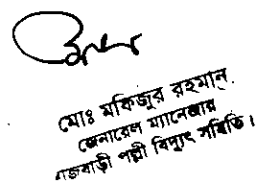 মোঃ মকিজুর রহমান
জেনারেল ম্যানেজার
রাজবাড়ী পল্লী বিদ্যুৎ সমিতি।